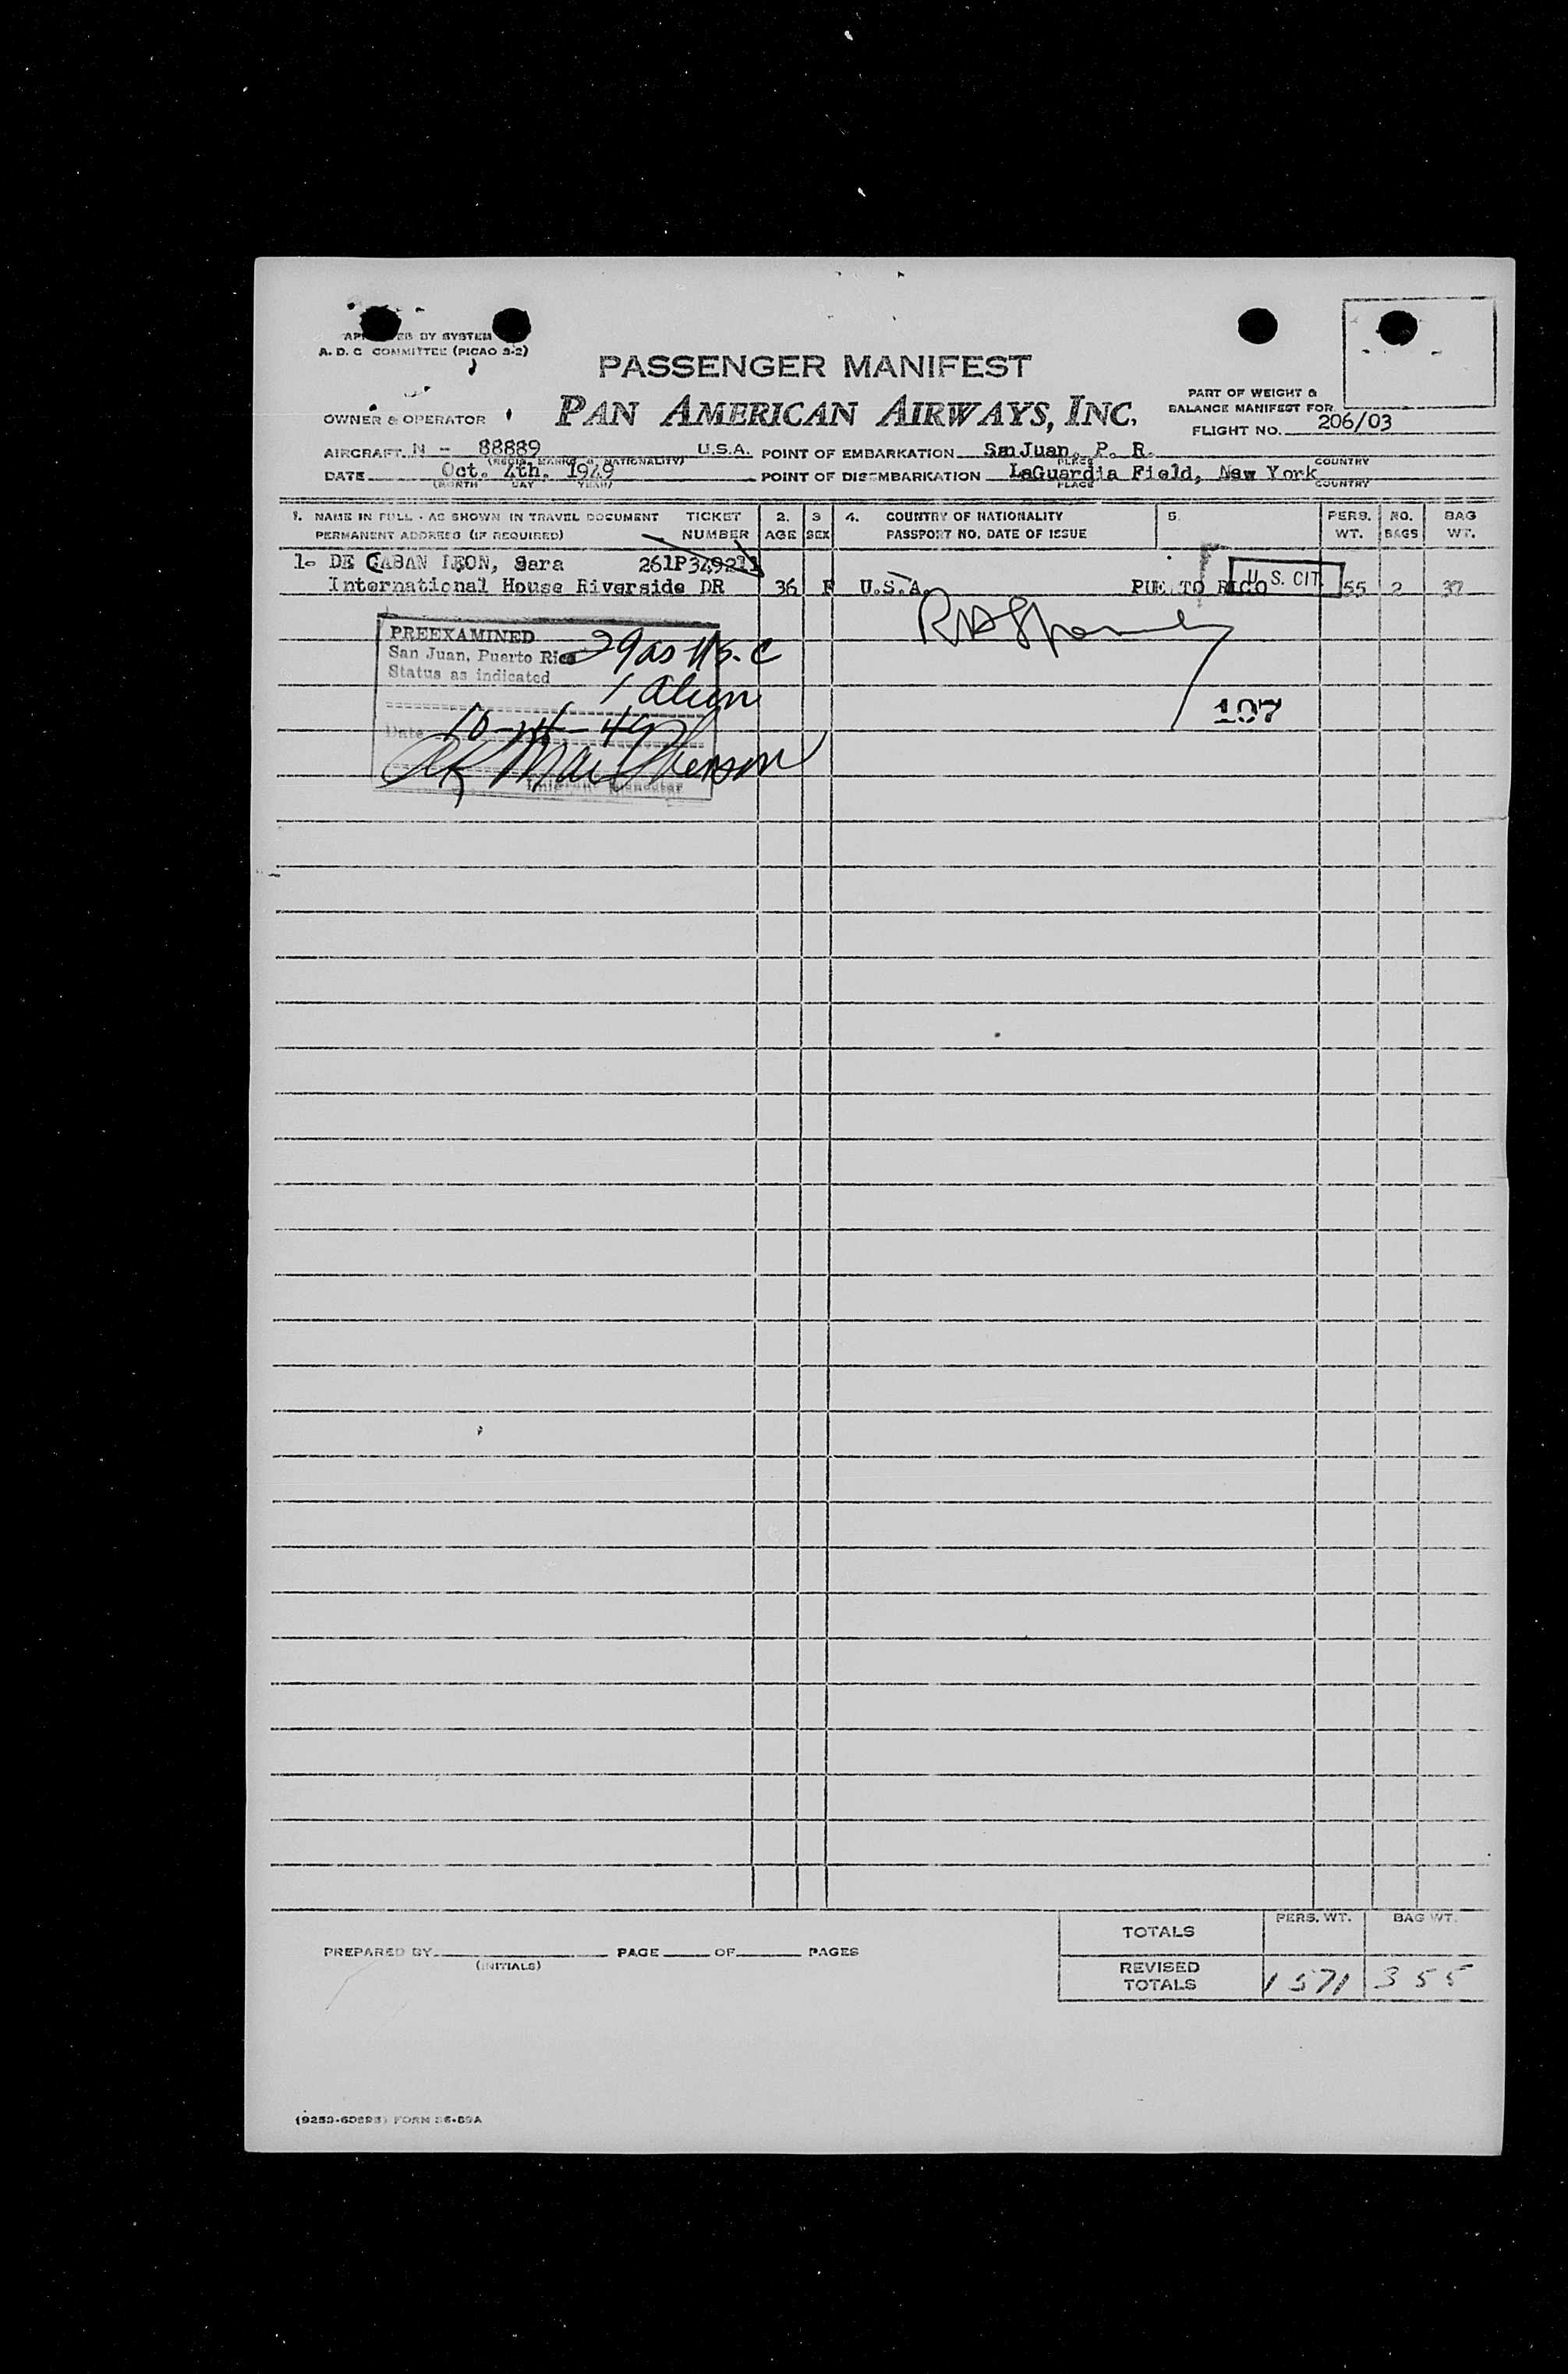 BY SYSTEM
A. D. C COMMITTEE (PICAO S-2)
PASSENGER MANIFEST
OWNER & OPERATOR
PAN AMERICAN AIRWAYS, INC.
PART OF WEIGHT &
BALANCE MANIFEST FOR
FLIGHT NO. 206/03
AIRCRAFT N - 88889 U.S.A. POINT OF EMBARKATION San Juan, P. R.
(REGIS. MARKS & NATIONALITY) PLACE COUNTRY
DATE Oct. 4th. 1949 POINT OF DISEMBARKATION LaGuardia Field, New York
(MONTH DAY YEAR) PLACE COUNTRY
1. NAME IN FULL - AS SHOWN IN TRAVEL DOCUMENT TICKET 2. 3 4. COUNTRY OF NATIONALITY 5. PERS. NO. BAG
PERMANENT ADDRESS (IF REQUIRED) NUMBER AGE SEX PASSPORT NO. DATE OF ISSUE WT. BAGS WT.
1- DE CABAN LEON, Sara
International House Riverside DR 36 F U.S.A. PUERTO RICO U. S. CIT. 55 2 37
PREEXAMINED
San Juan, Puerto Rico 29 as U.S.C
Status as indicated
1 alien
107
Date 10-4-49
Immigrant Inspector
TOTALS PERS. WT. BAG WT.
PREPARED BY PAGE OF PAGES
(INITIALS)
REVISED TOTALS 1571 355
FORM